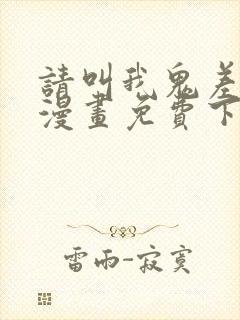 請叫我鬼差
漫畫免費下
雷雨-寂寞